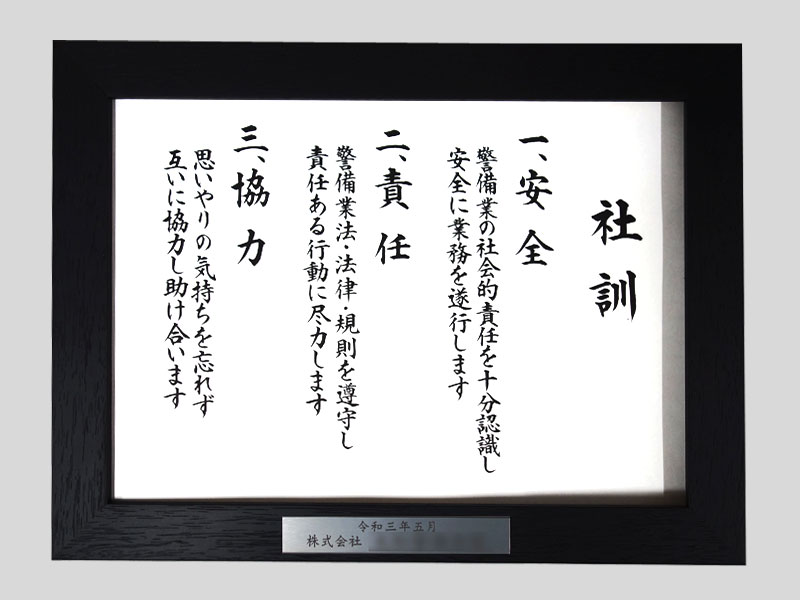 社訓
一、安全
警備業の社会的責任を十分認識し
安全に業務を遂行します
二、責任
警備業法・法律・規則を遵守し
責任ある行動に尽力します
三、協力
思いやりの気持ちを忘れず
互いに協力し助け合います
令和三年五月
株式会社